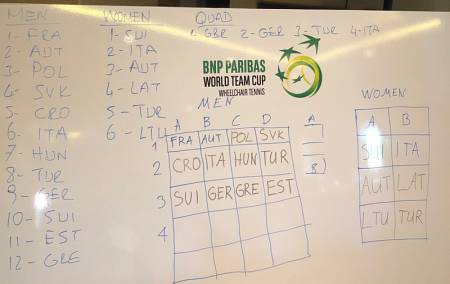 MEN
1- FRA
2- AUT
3- POL
4- SVK
5- CRO
6- ITA
7- HUN
8- TUR
9- GER
10- SUI
11- EST
12- GRE
WOMEN
1- SUI
2- ITA
3- AUT
4- LAT
5- TUR
6- LTU
QUAD
1- GBR 2- GER 3- TUR 4- ITA
BNP PARIBAS
WORLD TEAM CUP
WHEELCHAIR TENNIS
MEN
A B C D
1 FRA AUT POL SVK
2 CRO ITA HUN TUR
3 SUI GER GRE EST
4
A
B
WOMEN
A B
SUI ITA
AUT LAT
LTU TUR